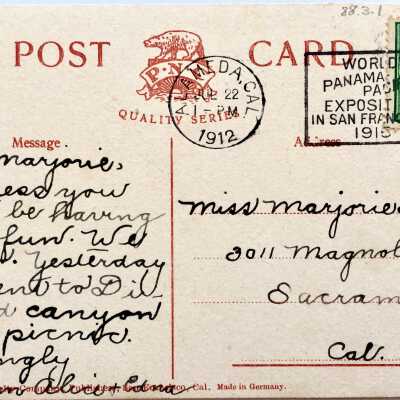 88.3.1
POST CARD
P.N.C.
QUALITY SERIES
ALAMEDA, CAL.
22
1-PM
1912
WORLD
PANAMA
PAC
EXPOSIT
IN SAN FRAN
1915
Message
Address
Marjorie,
ess you
be having
fun. We
Yesterday
ent to Di-
d canyon
picnic.
ngly
Elsie + Edna
Miss Marjorie
3011 Magnol
Sacram
Cal.
Publishers, San Francisco, Cal. Made in Germany.